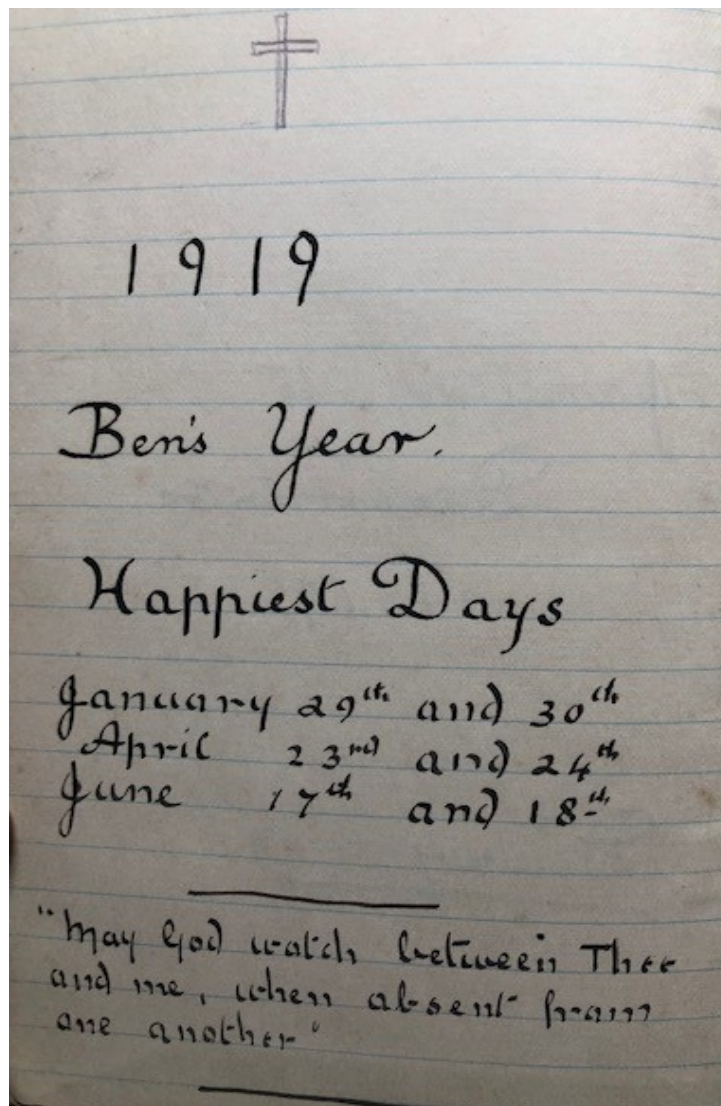 1919
Ben's Year.
Happiest Days
January 29th and 30th
April 23rd and 24th
June 17th and 18th
"May God watch between Thee
and me, when absent from
one another"